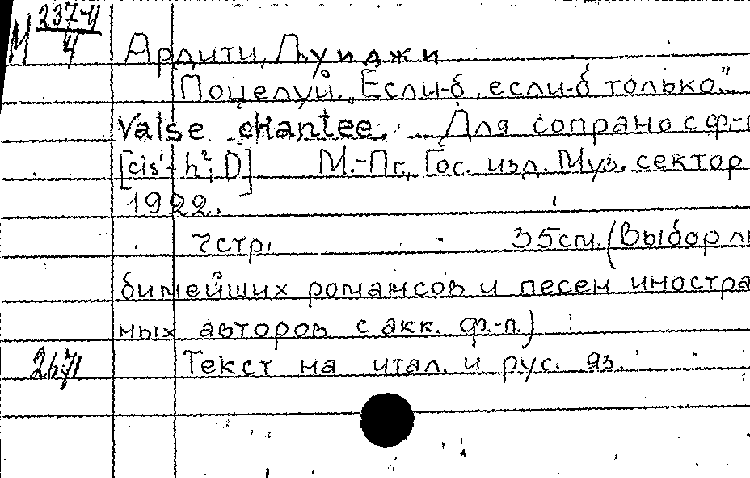 М 237-4/4
Ардити, Луиджи
Поцелуй. „Если-б, если-б только"
Valse chantee. Для сопрано с ф-п
[cis¹-h²; D] М.-Пг., Гос. изд. Муз. сектор
1922.
7 стр. 35 см. (Выбор лю
бимейших романсов и песен иностра
ных авторов с акк. ф-п.)
Текст на итал. и рус. яз.